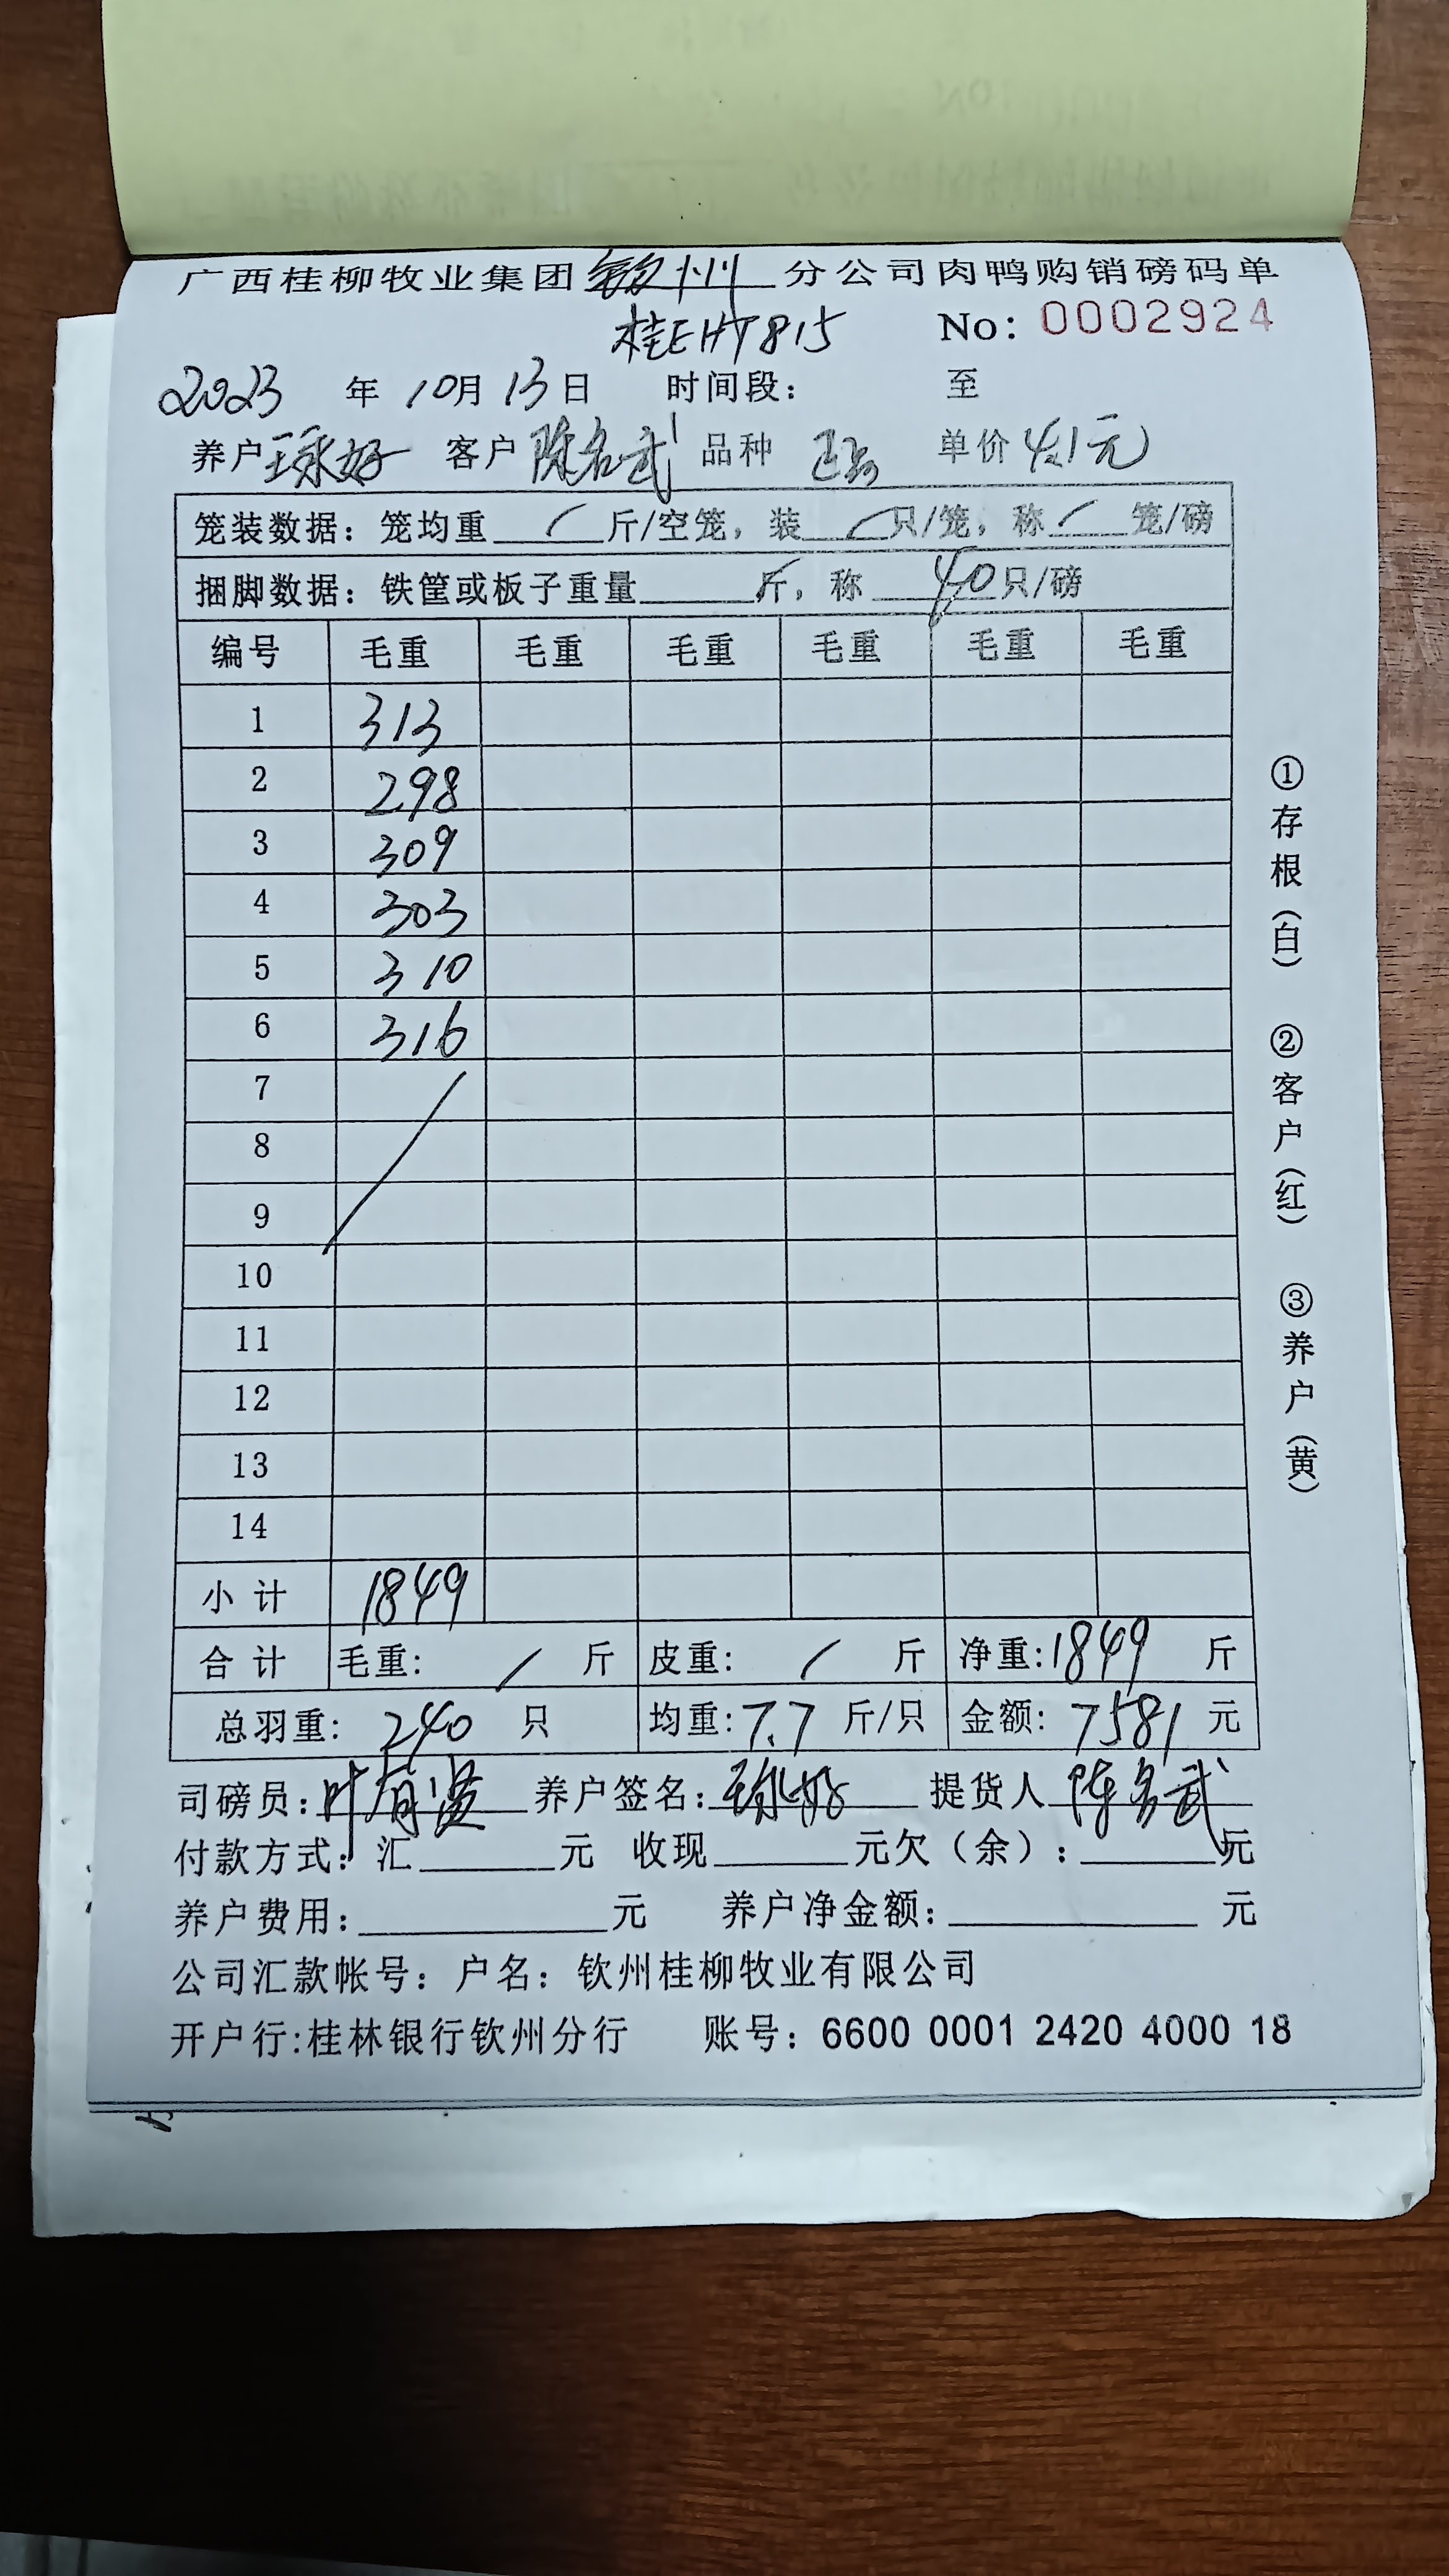 广西桂柳牧业集团钦州分公司肉鸭购销磅码单
桂EHT815 No: 0002924
2023年10月13日 时间段: 至
养户王永好 客户陈名武 品种 单价4.1元
笼装数据: 笼均重 / 斤/空笼, 装 / 只/笼, 称 / 笼/磅
捆脚数据: 铁筐或板子重量 / 斤, 称 40 只/磅
编号 毛重 毛重 毛重 毛重 毛重 毛重
1 313
2 298
3 309
4 303
5 310
6 316
7
8
9
10
11
12
13
14
小计 1849
合计 毛重: / 斤 皮重: / 斤 净重: 1849 斤
总羽重: 240 只 均重: 7.7 斤/只 金额: 7581 元
司磅员: 养户签名: 王永好 提货人 陈名武
付款方式: 汇 元 收现 元欠（余）: 元
养户费用: 元 养户净金额: 元
公司汇款帐号: 户名: 钦州桂柳牧业有限公司
开户行:桂林银行钦州分行 账号: 6600 0001 2420 4000 18
①存根（白） ②客户（红） ③养户（黄）